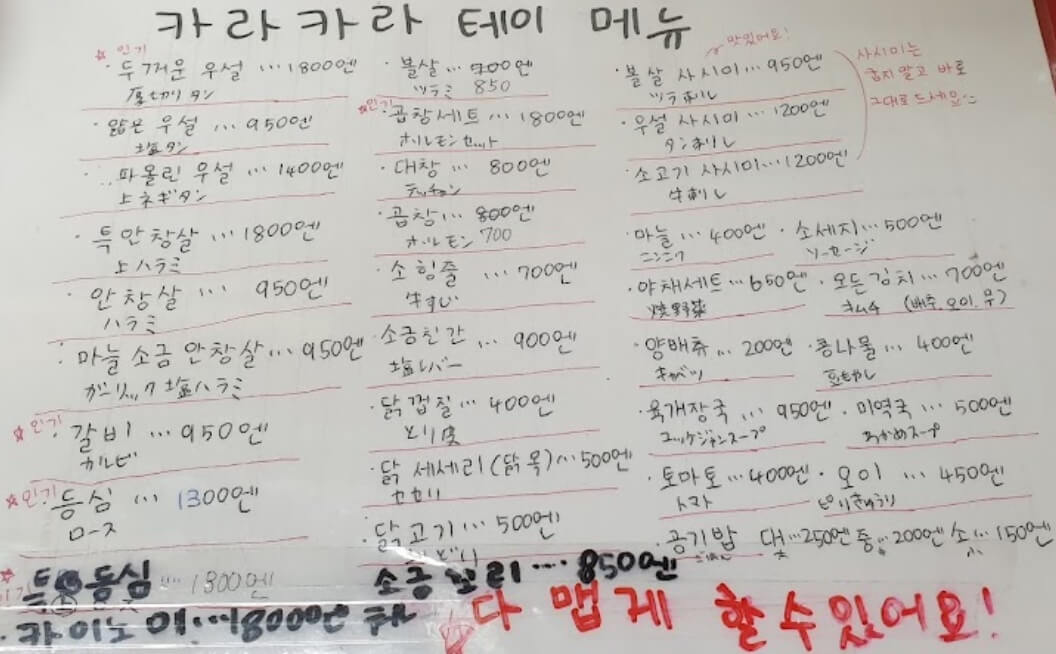 카라카라 테이 메뉴
☆인기
· 두꺼운 우설 … 1800엔
厚切りタン
· 얇은 우설 … 950엔
塩タン
· 파올린 우설 … 1400엔
上ネギタン
· 특안창살 … 1800엔
上ハラミ
· 안창살 … 950엔
ハラミ
· 마늘 소금 안창살 … 950엔
ガーリック塩ハラミ
☆인기
· 갈비 … 950엔
カルビ
☆인기
등심 … 1300엔
ロース
특 등심 … 1300엔
· 볼살 … 900엔
ツラミ 850
☆인기
· 곱창세트 … 1800엔
ホルモンセット
· 대창 … 800엔
テッチャン
· 곱창 … 800엔
ホルモン 700
· 소힘줄 … 700엔
牛すじ
· 소금친간 … 900엔
塩レバー
· 닭껍질 … 400엔
とり皮
· 닭 세세리(닭 목) … 500엔
セセリ
· 닭고기 … 500엔
소금꼬리 … 850엔
맛있어요!
· 볼살 사시미 … 950엔
ツラ刺し
· 우설 사시미 … 1200엔
タン刺し
· 소고기 사시미 … 1200엔
牛刺し
사시미는
굽지말고 바로
그대로 드세요
· 마늘 … 400엔 · 소세지 … 500엔
ニンニク ソーセージ
· 야채세트 … 650엔 · 모든김치 … 700엔
焼野菜 キムチ (배추, 오이, 무)
· 양배츄 … 200엔 · 콩나물 … 400엔
キャベツ 豆もやし
· 육개장국 … 950엔 · 미역국 … 500엔
ユッケジャンスープ わかめスープ
· 토마토 … 400엔 · 오이 … 450엔
トマト ピリきゅうり
· 공기밥 대 … 250엔 중 … 200엔 소 … 150엔
ごはん 大 小
다 맵게 할 수 있어요!